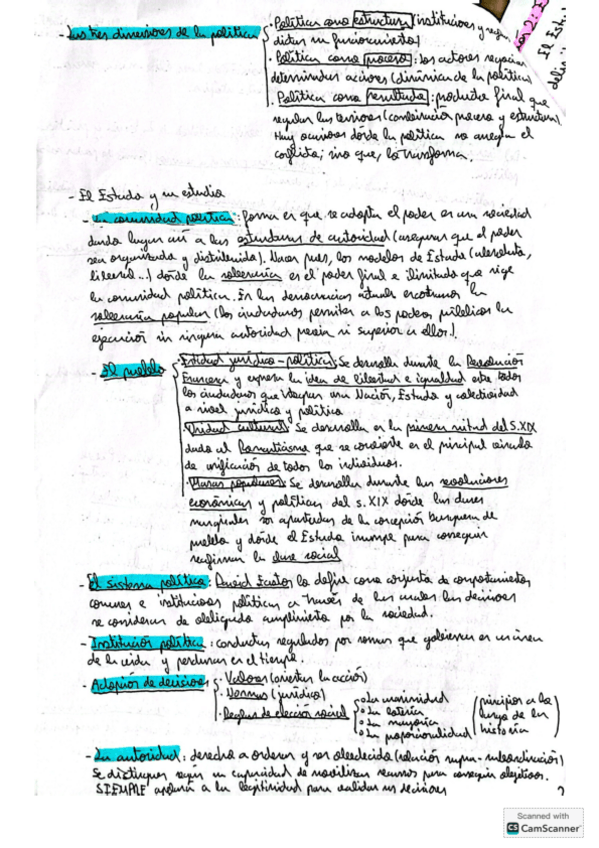 - Las tres dimensiones de la política
· Política como estructura (instituciones y
dictan su funcionamiento)
· Política como proceso: los actores negocian
determinadas acciones (dinámica de la política)
· Política como resultado: producto final que
regulan las tensiones (combinación proceso y estructura)
Hay ocasiones donde la política no arregla el
conflicto; sino que, lo transforma.
- El Estado y su estudio
- La comunidad política: forma en que se adopta el poder en una sociedad
dando lugar así a las estructuras de autoridad (aseguran que el poder
sea organizado y distribuido). Unos pues, los modelos de Estado (absoluto,
liberal...) donde la soberanía es el poder final e ilimitado que rige
la comunidad política. En las democracias actuales encontramos la
soberanía popular (los ciudadanos permiten a los poderes públicos la
ejecución sin ninguna autoridad previa ni superior a ellos).
- El pueblo
· Entidad jurídico-política: Se desarrolla durante la Revolución
Francesa y expresa la idea de libertad e igualdad entre todos
los ciudadanos que una Nación, Estado y colectividad
a nivel jurídico y político
· Unidad cultural: Se desarrolla en la primera mitad del S. XIX
dado al Romanticismo que se convierte en el principal vínculo
de unificación de todos los individuos.
· Masas populares: Se desarrolla durante las revoluciones
económicas y políticas del s. XIX donde las clases
marginales son apartadas de la concepción burguesa de
pueblo y donde el Estado irrumpe para conseguir
reafirmar la clase social
- El sistema político: David Easton lo define como conjunto de comportamientos
comunes e instituciones políticas a través de las cuales las decisiones
se consideran de obligado cumplimiento por la sociedad.
- Institución política: conductas reguladas por normas que gobiernan en un área
de la vida y perduran en el tiempo.
- Adopción de decisiones
· Valores (orientan la acción)
· Normas (jurídica)
· Reglas de elección social
o La unanimidad
o La lotería
o La mayoría
o La proporcionalidad
(principios a lo
largo de la
historia)
- La autoridad: derecho a ordenar y ser obedecido (relación supra-subordinación)
Se distinguen según su capacidad de movilizar recursos para conseguir objetivos.
SIEMPRE apelará a la legitimidad para validar sus decisiones
Scanned with
CS CamScanner